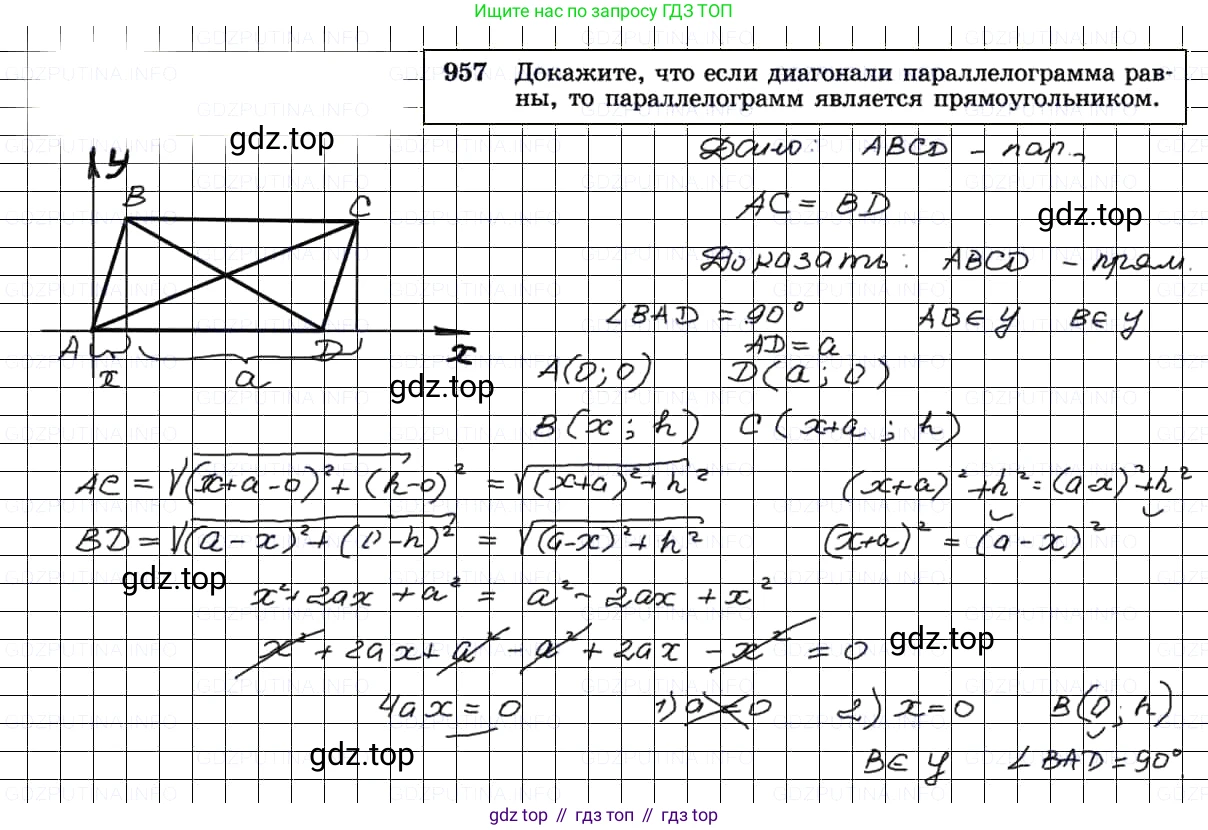 Ищите нас по запросу ГДЗ ТОП
957 Докажите, что если диагонали параллелограмма рав-
ны, то параллелограмм является прямоугольником.
gdz.top
Дано: ABCD - пар.
y
B
C
AC = BD
gdz.top
Доказать: ABCD - прям.
∠BAD = 90° AB ∈ y B ∈ y
A
D
x
AD = a
x
a
gdz.top
A(0; 0) D(a; 0)
B(x; h) C(x+a; h)
AC = √(x+a-0)²+(h-0)² = √(x+a)²+h² (x+a)²+h²=(ax)²+h²
BD = √(a-x)²+(0-h)² = √(a-x)²+h² (x+a)² = (a-x)²
gdz.top
x²+2ax+a² = a²-2ax+x²
x²+2ax+a²-a²+2ax-x²=0
gdz.top
4ax=0 1) a=0 2) x=0 B(0; h)
gdz.top
B ∈ y ∠BAD=90°.
gdz top // гдз топ // gdz top
GDZPUTINA.INFO